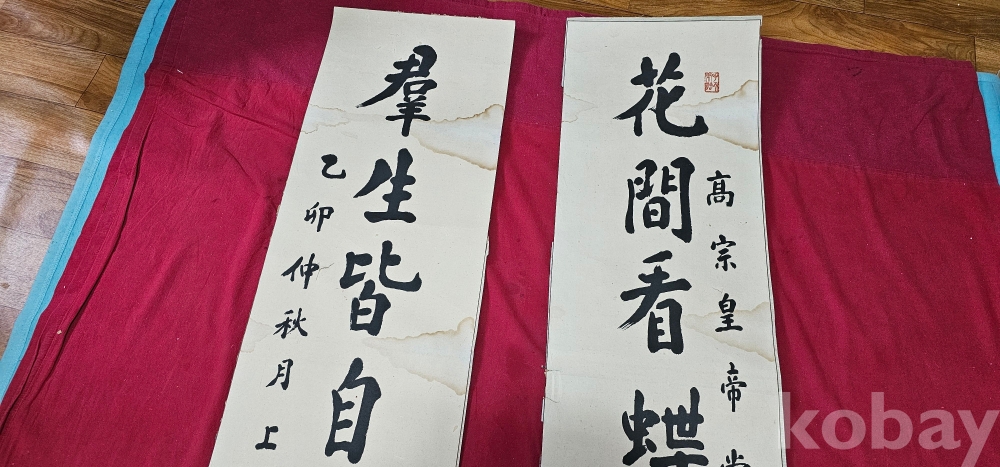 花間看蝶
高宗皇帝
羣生皆自
乙卯仲秋月上
kobay